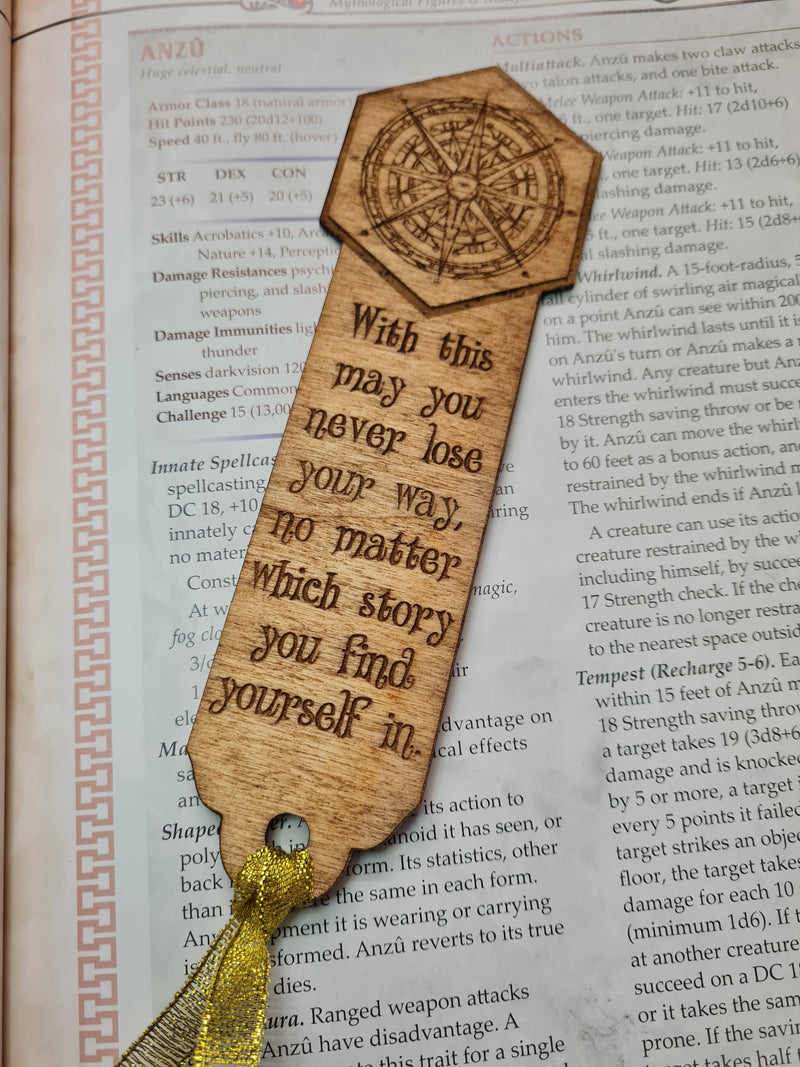 Mythological Figures &
ANZÛ
Huge celestial, neutral
Armor Class 18 (natural armor)
Hit Points 230 (20d12+100)
Speed 40 ft., fly 80 ft. (hover)
STR DEX CON
23 (+6) 21 (+5) 20 (+5)
Skills Acrobatics +10,
Nature +14,
Damage Resistances
piercing, and
weapons
Damage Immunities
thunder
Senses darkvision 120
Languages Common
Challenge 15 (13,00
Innate
spellcasting
DC 18, +10
innately
no
At
fog
3/
1
an
magic,
dvantage on
ical effects
its action to
it has seen, or
form. Its statistics, other
back the same in each form.
than it is wearing or carrying
Anzû reverts to its true
dies.
Ranged weapon attacks
Anzû have disadvantage. A
this trait for a single
With this
may you
never lose
your way,
no matter
which story
you find
yourself in.
ACTIONS
Multiattack. Anzû makes two claw attacks,
two talon attacks, and one bite attack.
Melee Weapon Attack: +11 to hit,
ft., one target. Hit: 17 (2d10+6)
piercing damage.
Weapon Attack: +11 to hit,
, one target. Hit: 13 (2d6+6)
slashing damage.
Weapon Attack: +11 to hit,
5 ft., one target. Hit: 15 (2d8+
slashing damage.
Whirlwind. A 15-foot-radius, 5
tall cylinder of swirling air magical
on a point Anzû can see within 200
him. The whirlwind lasts until it is
on Anzû's turn or Anzû makes a
whirlwind. Any creature but Anz
enters the whirlwind must succe
18 Strength saving throw or be
by it. Anzû can move the whirl
to 60 feet as a bonus action, and
restrained by the whirlwind
The whirlwind ends if Anzû
A creature can use its actio
creature restrained by the
including himself, by succee
17 Strength check. If the
creature is no longer restra
to the nearest space outsid
Tempest (Recharge 5-6). Ea
within 15 feet of Anzû
18 Strength saving throw
a target takes 19 (3d8+6
damage and is knocke
by 5 or more, a target
every 5 points it failed
target strikes an obje
floor, the target takes
damage for each 10
(minimum 1d6). If
at another creature
succeed on a DC 1
or it takes the sam
prone. If the savin
target takes half